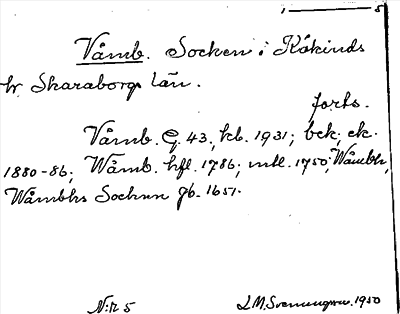 1 — 5
Våmb. Socken i Kåkinds
hr Skaraborgs län.
forts.
Våmb. G. 43, kb. 1931; bek; ek.
1880-86; Wåmb. hfl. 1786; mtl. 1750; Wåmbh,
Wåmbhs Sochnn jb. 1651.
N:r 5
1950